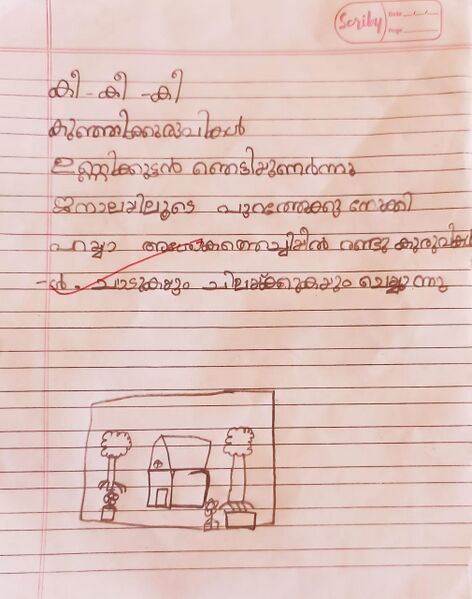 Scriby
Date __/__/__
Page
കീ - കീ - കീ
കുഞ്ഞിക്കുരുവികൾ
ഉണ്ണിക്കുട്ടൻ ഞെട്ടിയുണർന്നു
ജനാലയിലൂടെ പുറത്തേക്കു നോക്കി
ഹായ്യാ രണ്ടു കുരുവിക
-ൾ. പാടുകയും ചിലയ്ക്കുകയും ചെയ്യുന്നു